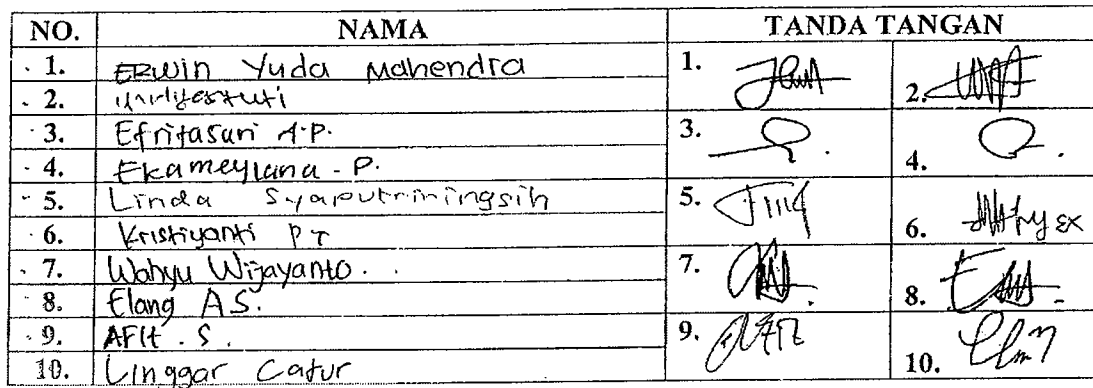 NO. NAMA TANDA TANGAN
1. Erwin Yuda Mahendra 1.
2. 2.
3. Efritasari A.P. 3.
4. Ekameylana - P. 4.
5. Linda 5.
6. Kristiyanti PT 6.
7. Wahyu Wijayanto. 7.
8. Elang A.S. 8.
9. AFIT . S. 9.
10. Linggar Catur 10.